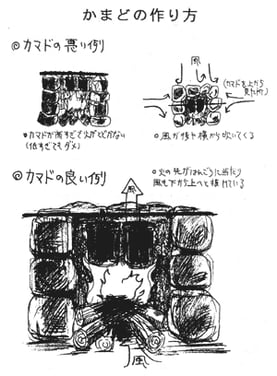 かまどの作り方
◎カマドの悪い例
風
(カマドを上から
見た所)
●カマドが高すぎて火がとどかない
(低すぎてもダメ)
●風が後や横から吹いてくる
◎カマドの良い例
●火の先がはんごうに当たり
風も下から上へと抜けている
風
風